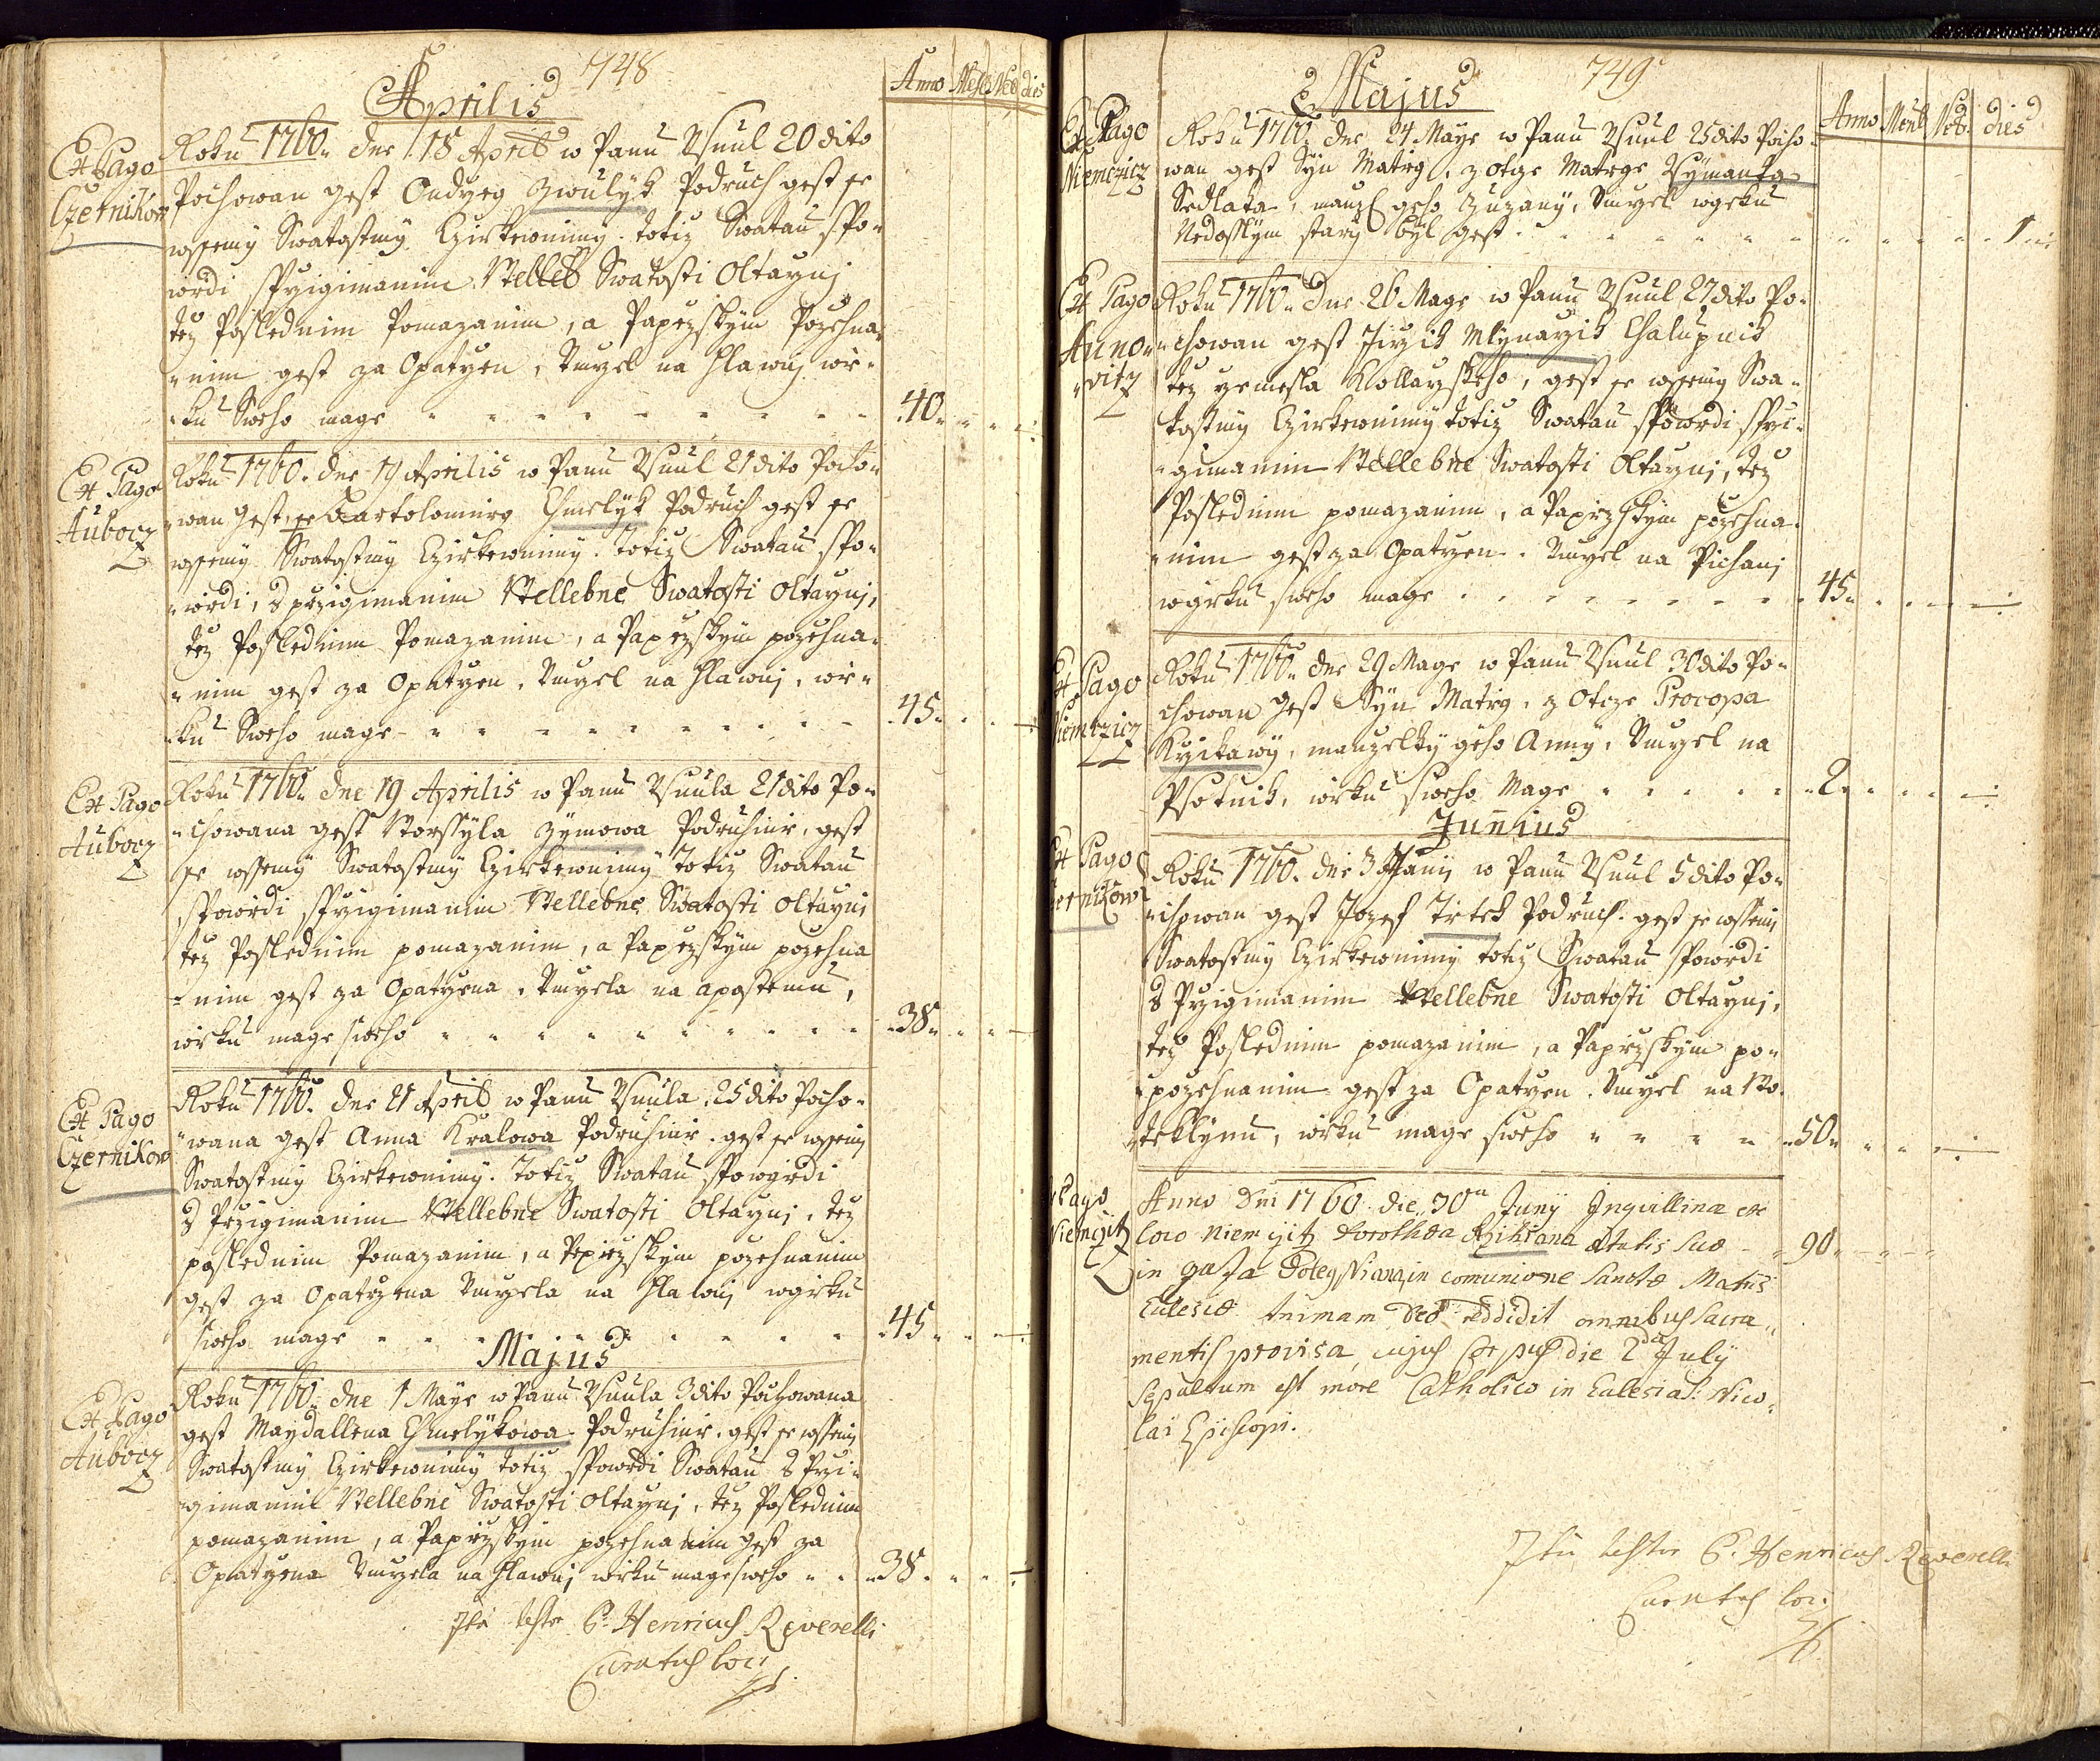 748
Aprilis
Anno Mens Heb dies
Ex Pago
Czernikow
Roku 1760. dne 18 Aprilis w Panu Usnul 20 dito
Pochowan gest Ondrzeg Zwulyk Podruch gest se
wssemy Swatostmy Czirkewnimy. totiz Swatau spo-
wědi Sprzigimanim Velleb Swatosti Oltarznj
tez Poslednim Pomazanim, a Papezskym Pozehna-
nim gest za Opatrzen, Umrzel na hlawnj wě-
ku Sweho mage 40.
Ex Pago
Aubocz
Roku 1760. dne 19 Aprilis w Panu Usnul 21 dito Pocho-
wan Gest Bartolomieg Chmelyk Podruch gest se
wssemy Swatostmy Czirkewnimy. Totiz Swatau spo-
wědi, S przigimanim Vellebne Swatosti Oltarznj,
tez Poslednim Pomazanim, a Papezskym pozehna-
nim gest za Opatrzen, Umrzel na hlawnj, wě-
ku Sweho mage 45.
Ex Pago
Aubocz
Roku 1760. dne 19 Aprilis w Panu Usnula 21 dito Po-
chowana gest Worssyla Zymowa Podruhině, gest
se wssemy Swatostmy Czirkewnimy Totiz Swatau
spowědi Sprzigimanim Vellebne Swatosti Oltarznj
tez Poslednim pomazanim, a Papezskym pozehna
nim gest za Opatrzena, Umrzela na apostemu,
wěku mage sweho 38.
Ex Pago
Czernikow
Roku 1760. dne 21 Aprilis w Panu Usnula, 25 dito Pocho-
wana gest Anna Kralowa Podruhině. gest se wssemy
Swatostmy Czirkewnimy. Totiz Swatau Spowědi
S Przigimanim Vellebne Swatosti Oltarznj, tez
poslednim Pomazanim, a Papezskym pozehnanim
gest za Opatrzena Umrzela na hlawnj wěku
sweho mage 45.
Majus
Ex Pago
Aubocz
Roku 1760. dne 1 Maye w Panu Usnula 3 dito Pochowana
gest Maydallena Chmelykowa Podruhině. gest se wssemy
Swatostmy Czirkewnimy totiz Spowědi Swatau S Przi-
gimanim Vellebne Swatosti Oltarznj, tez Poslednim
pomazanim, a Papezskym pozehnanim gest za
Opatrzena Umrzela na hlawnj wěku mage sweho 38.
Ita testor P. Henricus Reverelli
Curatus loci
749
Majus
Anno Mens Heb. dies
Ex Pago
Niemczicz
Roku 1760. dne 24 Maye w Panu Usnul 25 dito Pocho-
wan gest Syn Matieg, z otcze Matege Ssymanka
Sedlaka, manz: geho Zuzany, Umrzel wěku
Nedosslym stary byl gest 1
Ex Pago
Auno-
witz
Roku 1760. dne 26 Mage w Panu Usnul 27 dito Po-
chowan gest Jirzik Mlynarzik Chalupnik
tez rzemesla Kollarzskeho, gest se wssemy Swa-
tostmy Czirkewnimy totiz Swatau spowědi Sprzi-
gimanim Vellebne Swatosti Oltarznj, tez
Poslednim pomazanim, a Papezskym pozehna-
nim gest za Opatrzen. Umrzel na Pichanj
wěku sweho mage 45.
Ex Pago
Niemczicz
Roku 1760. dne 29 Mage w Panu Usnul 30 dito Po-
chowan gest Syn Matieg, z Otcze Procopa
Krzikawy, manzelky geho Anny, Umrzel na
Psotnik, wěku sweho Mage 2.
Junnius
Ex Pago
Czernikow
Roku 1760. dne 3 Juny w Panu Usnul 5 dito Po-
chowan gest Jozef Tirtek Podruch. gest se wssemy
Swatostmy Czirkewnimy totiz Swatau Spowědi
S Przigimanim Vellebne Swatosti Oltarznj,
tez Poslednim pomazanim, a Papezskym po-
pozehnanim gest za Opatrzen. Umrzel na Wo-
teklynu, wěku mage sweho 50.
Ex Pago
Niemcžitz
Anno Dni 1760 die 30ma Juny Inquillina ex
loco Niemcžitz Dorothea Rzihsana Ætatis suæ 90.
in gaza in comunione Sanctæ Matris
Eclesiæ Animam Deo reddidit omnibus Sacra-
mentis provisa, cujus Corpus die 2da July
Sepultum est more Catholico in Eclesia S: Nico-
lai Episcopi.
Ita testor P. Henricus Reverelli
Curatus loci